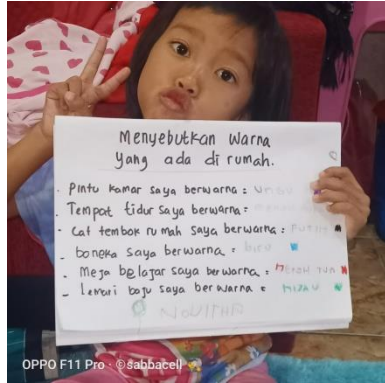 Menyebutkan Warna
yang ada di rumah.
- Pintu kamar saya berwarna : UNGU
- Tempat tidur saya berwarna :
- Cat tembok rumah saya berwarna : PUTIH
- boneka saya berwarna : biru
- Meja belajar saya berwarna : MERAH
- Lemari baju saya berwarna : HIJAU
NOVITHA
OPPO F11 Pro · ©sabbacell